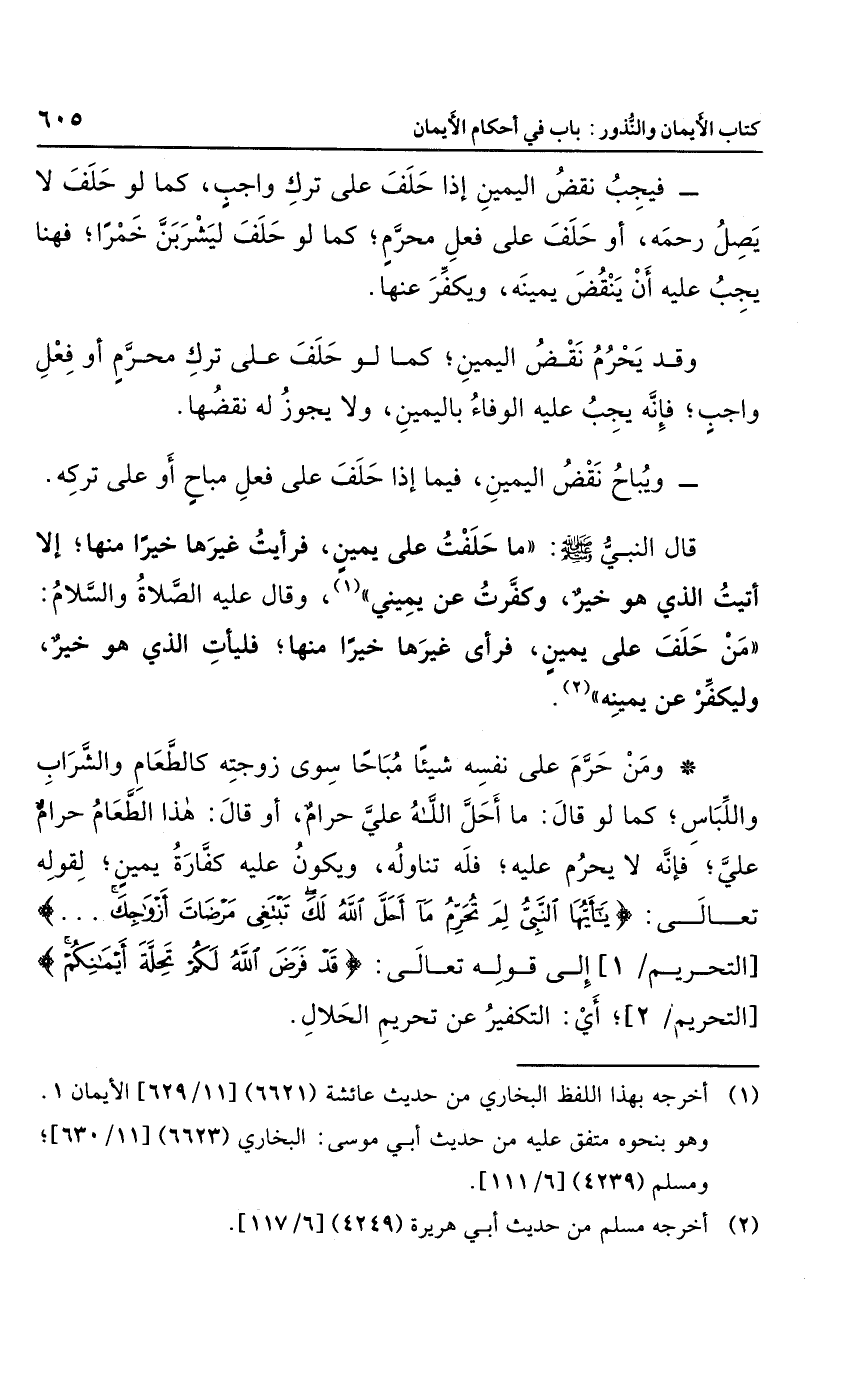 كتاب الأَيمان والنُّذور : باب في أحكام الأَيمان ٦٠٥
ـ فيجِبُ نقضُ اليمينِ إذا حَلَفَ على تركِ واجبٍ، كما لو حَلَفَ لا
يَصِلُ رحمَه، أو حَلَفَ على فعلِ محرَّمٍ؛ كما لو حَلَفَ ليَشْرَبَنَّ خَمْرًا؛ فهنا
يجِبُ عليه أَنْ يَنْقُضَ يمينَه، ويكفِّرَ عنها.
وقد يَحْرُمُ نَقْضُ اليمينِ؛ كما لو حَلَفَ على تركِ محرَّمٍ أو فِعْلِ
واجبٍ؛ فإِنَّه يجِبُ عليه الوفاءُ باليمينِ، ولا يجوزُ له نقضُها.
ـ ويُباحُ نَقْضُ اليمينِ، فيما إذا حَلَفَ على فعلِ مباحٍ أو على تركِه.
قال النبيُّ ﷺ: «ما حَلَفْتُ على يمينٍ، فرأيتُ غيرَها خيرًا منها؛ إلا
أتيتُ الذي هو خيرٌ، وكفَّرتُ عن يمِيني»(١)، وقال عليه الصَّلاةُ والسَّلامُ:
«مَنْ حَلَفَ على يمينٍ، فرأى غيرَها خيرًا منها؛ فليأتِ الذي هو خيرٌ،
وليكفِّرْ عن يمينِه»(٢).
* ومَنْ حَرَّمَ على نفسِه شيئًا مُبَاحًا سِوى زوجتِه كالطَّعَامِ والشَّرَابِ
واللِّبَاسِ؛ كما لو قالَ: ما أَحَلَّ اللَّـهُ عليَّ حرامٌ، أو قالَ: هٰذا الطَّعَامُ حرامٌ
عليَّ؛ فإنَّه لا يحرُم عليه؛ فلَه تناولُه، ويكونُ عليه كفَّارَةُ يمينٍ؛ لِقولِه
تعـالَـى: ﴿يَٰٓأَيُّهَا ٱلنَّبِىُّ لِمَ تُحَرِّمُ مَآ أَحَلَّ ٱللَّهُ لَكَۖ تَبْتَغِى مَرْضَاتَ أَزْوَٰجِكَۚ ...﴾
[التحريـم/ ١] إلـى قـولِـه تعـالَى: ﴿قَدْ فَرَضَ ٱللَّهُ لَكُمْ تَحِلَّةَ أَيْمَٰنِكُمْۚ﴾
[التحريم/ ٢]؛ أَيْ: التكفيرُ عن تحريمِ الحَلالِ.
(١) أخرجه بهذا اللفظ البخاري من حديث عائشة (٦٦٢١) [٦٢٩/١١] الأيمان ١.
وهو بنحوه متفق عليه من حديث أبـي موسى: البخاري (٦٦٢٣) [٦٣٠/١١]؛
ومسلم (٤٢٣٩) [١١١/٦].
(٢) أخرجه مسلم من حديث أبـي هريرة (٤٢٤٩) [١١٧/٦].